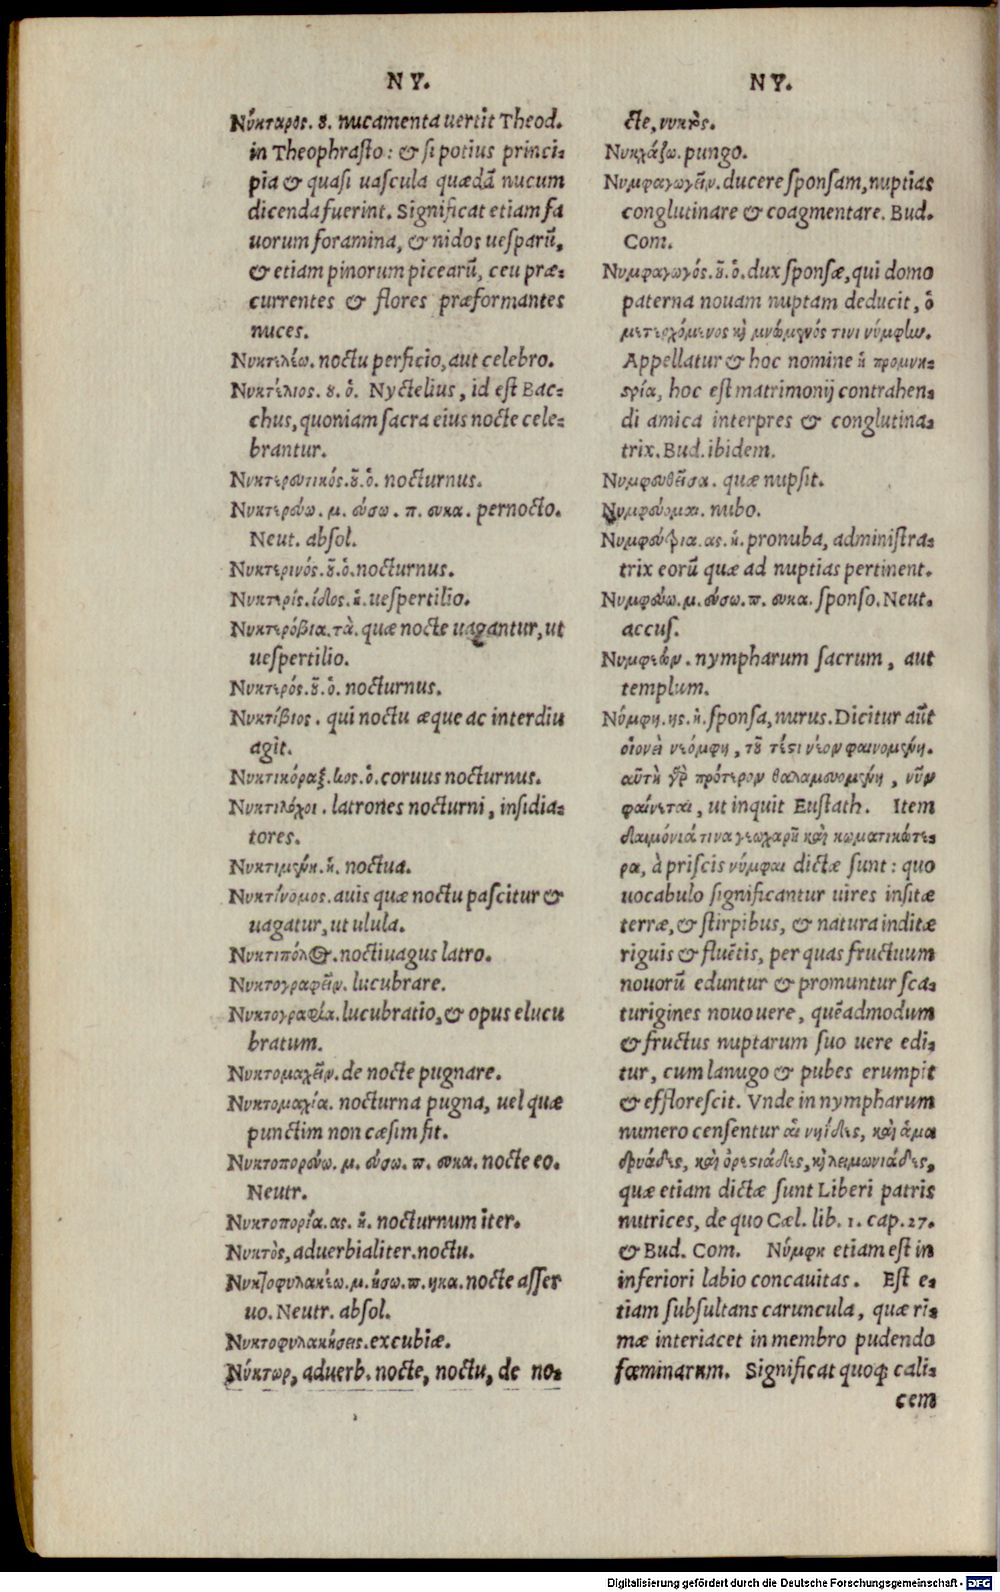 N Y.
Νύκταρος. ȣ. nucamenta uertit Theod.
in Theophrasto: & si potius princi-
pia & quasi uascula quædã nucum
dicenda fuerint. Significat etiam fa
uorum foramina, & nidos uesparũ,
& etiam pinorum picearũ, ceu præ-
currentes & flores præformantes
nuces.
Νυκτελέω. noctu perficio, aut celebro.
Νυκτέλιος. ȣ. ὁ. Nyctelius, id est Bac-
chus, quoniam sacra eius nocte cele-
brantur.
Νυκτερευτικός. ȣ͂. ὁ. nocturnus.
Νυκτερεύω. μ. εύσω. π. ευκα. pernocto.
Neut. absol.
Νυκτερινός. ȣ͂. ὁ. nocturnus.
Νυκτερίς. ίδος. ἡ. uespertilio.
Νυκτερόβια. τὰ. quæ nocte uagantur, ut
uespertilio.
Νυκτερός. ȣ͂. ὁ. nocturnus.
Νυκτίβιος. qui noctu æque ac interdiu
agit.
Νυκτικόραξ. κος. ὁ. coruus nocturnus.
Νυκτιλόχοι. latrones nocturni, insidia-
tores.
Νυκτιμένη. ἡ. noctua.
Νυκτίνομος. auis quæ noctu pascitur &
uagatur, ut ulula.
Νυκτιπόλος. noctiuagus latro.
Νυκτογραφεῖν. lucubrare.
Νυκτογραφία. lucubratio, & opus elucu
bratum.
Νυκτομαχεῖν. de nocte pugnare.
Νυκτομαχία. nocturna pugna, uel quæ
punctim non cæsim fit.
Νυκτοπορεύω. μ. εύσω. π. ευκα. nocte eo.
Neutr.
Νυκτοπορία. ας. ἡ. nocturnum iter.
Νυκτὸς, aduerbialiter. noctu.
Νυκτοφυλακέω. μ. ήσω. π. ηκα. nocte asser
uo. Neutr. absol.
Νυκτοφυλακήσεις. excubiæ.
Νύκτωρ, aduerb. nocte, noctu, de no-
N Y.
cte, νυκτὸς.
Νυκχάζω. pungo.
Νυμφαγωγεῖν. ducere sponsam, nuptias
conglutinare & coagmentare. Bud.
Com.
Νυμφαγωγός. ȣ͂. ὁ. dux sponsæ, qui domo
paterna nouam nuptam deducit, ὁ
μετερχόμενος κὴ μνώμενός τινι νύμφην.
Appellatur & hoc nomine ἡ προμνη-
στρία, hoc est matrimonij contrahen-
di amica interpres & conglutina-
trix. Bud. ibidem.
Νυμφευθεῖσα. quæ nupsit.
Νυμφεύομαι. nubo.
Νυμφεύτρια. ας. ἡ. pronuba, administra-
trix eorũ quæ ad nuptias pertinent.
Νυμφεύω. μ. εύσω. π. ευκα. sponso. Neut.
accus.
Νυμφεών. nympharum sacrum, aut
templum.
Νύμφη. ης. ἡ. sponsa, nurus. Dicitur aũt
οἱονεὶ νεόμφη, τȣ͂ τέστι νέον φαινομένη.
αὕτη γὰρ πρότερον θαλαμευομένη, νῦν
φαίνεται, ut inquit Eustath. Item
δαιμόνιά τινα γεωχαρῆ καὶ κωματικώτε-
ρα, à priscis νύμφαι dictæ sunt: quo
uocabulo significantur uires insitæ
terræ, & stirpibus, & natura inditæ
riguis & fluẽtis, per quas fructuum
nouorũ eduntur & promuntur sca-
turigines nouo uere, quẽadmodum
& fructus nuptarum suo uere edi-
tur, cum lanugo & pubes erumpit
& efflorescit. Vnde in nympharum
numero censentur αἱ νηΐδες, καὶ ἁμα
δρυάδες, καὶ ὀρεστιάδες, κὴ λειμωνιάδες,
quæ etiam dictæ sunt Liberi patris
nutrices, de quo Cæl. lib. 1. cap. 27.
& Bud. Com. Νύμφη etiam est in
inferiori labio concauitas. Est e-
tiam subsultans caruncula, quæ ri-
mæ interiacet in membro pudendo
fœminarum. Significat quoq; cali-
cem
Digitalisierung gefördert durch die Deutsche Forschungsgemeinschaft - DFG